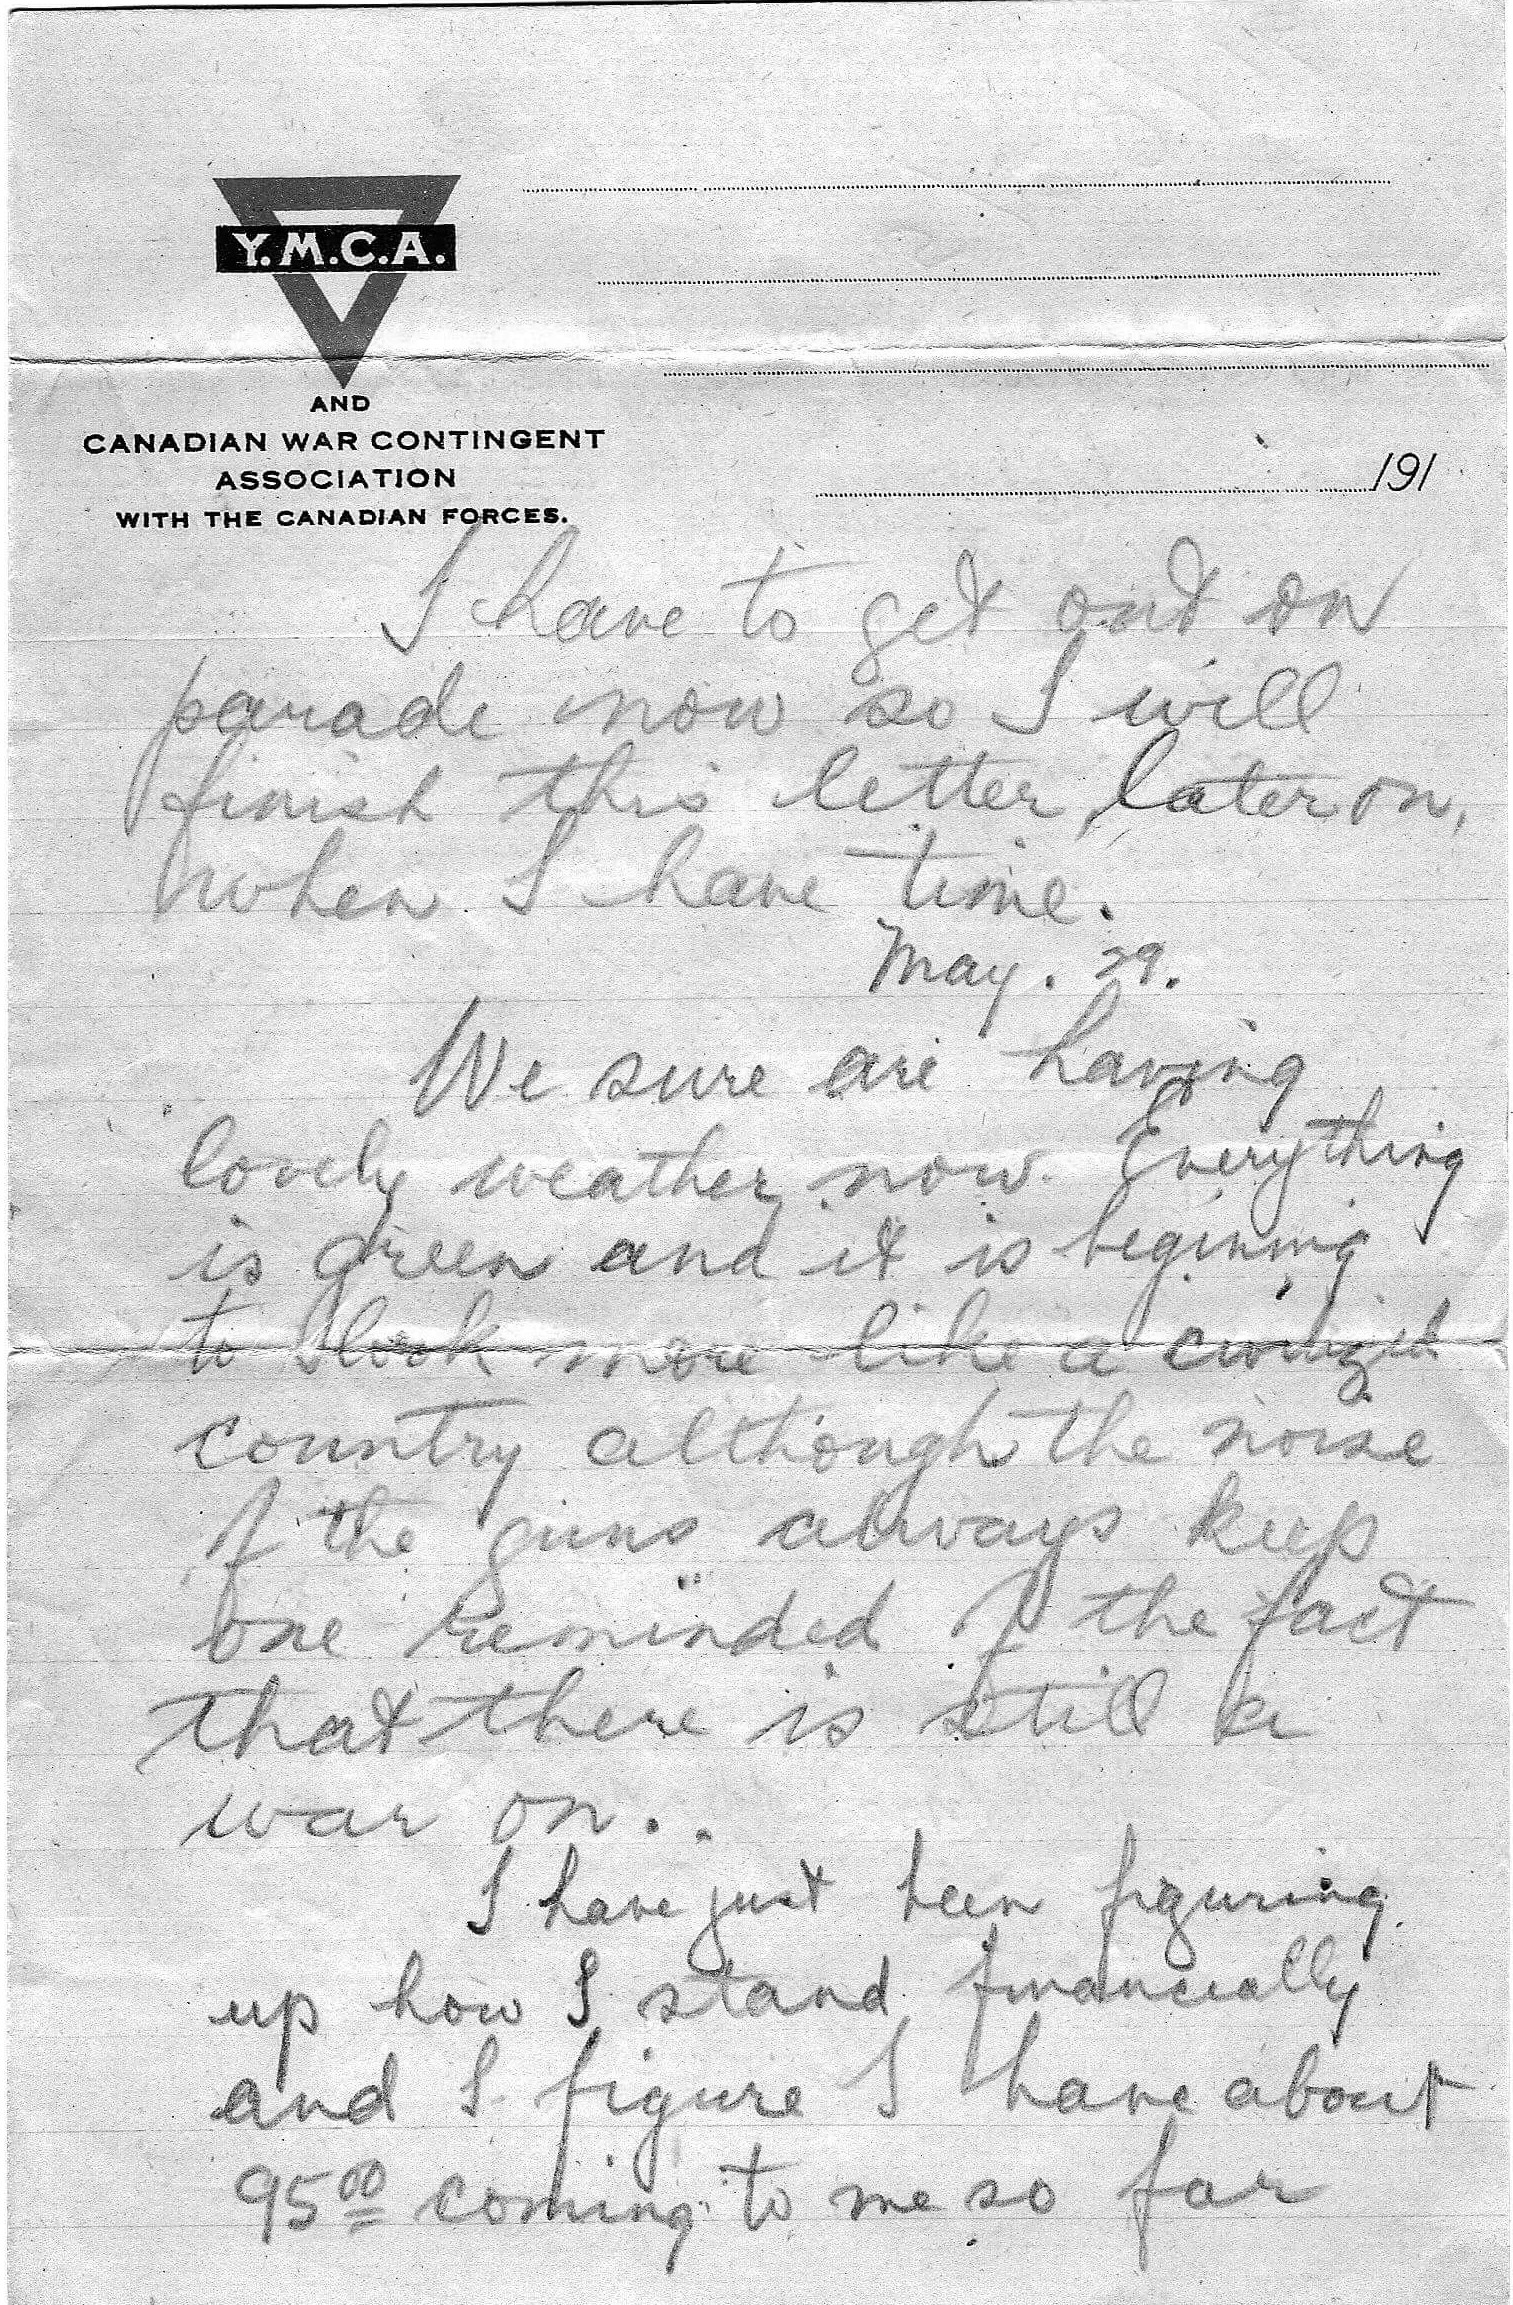 Y.M.C.A.
AND
CANADIAN WAR CONTINGENT
ASSOCIATION
WITH THE CANADIAN FORCES.
191
I have to get out on
parade now so I will
finish this letter later on,
when I have time.
May. 29.
We sure are having
lovely weather now. Everything
is green and it is beginning
to look more like a civilized
country although the noise
of the guns always keep
one reminded of the fact
that there is still a
war on..
I have just been figuring
up how I stand financially
and I figure I have about
95 00 coming to me so far